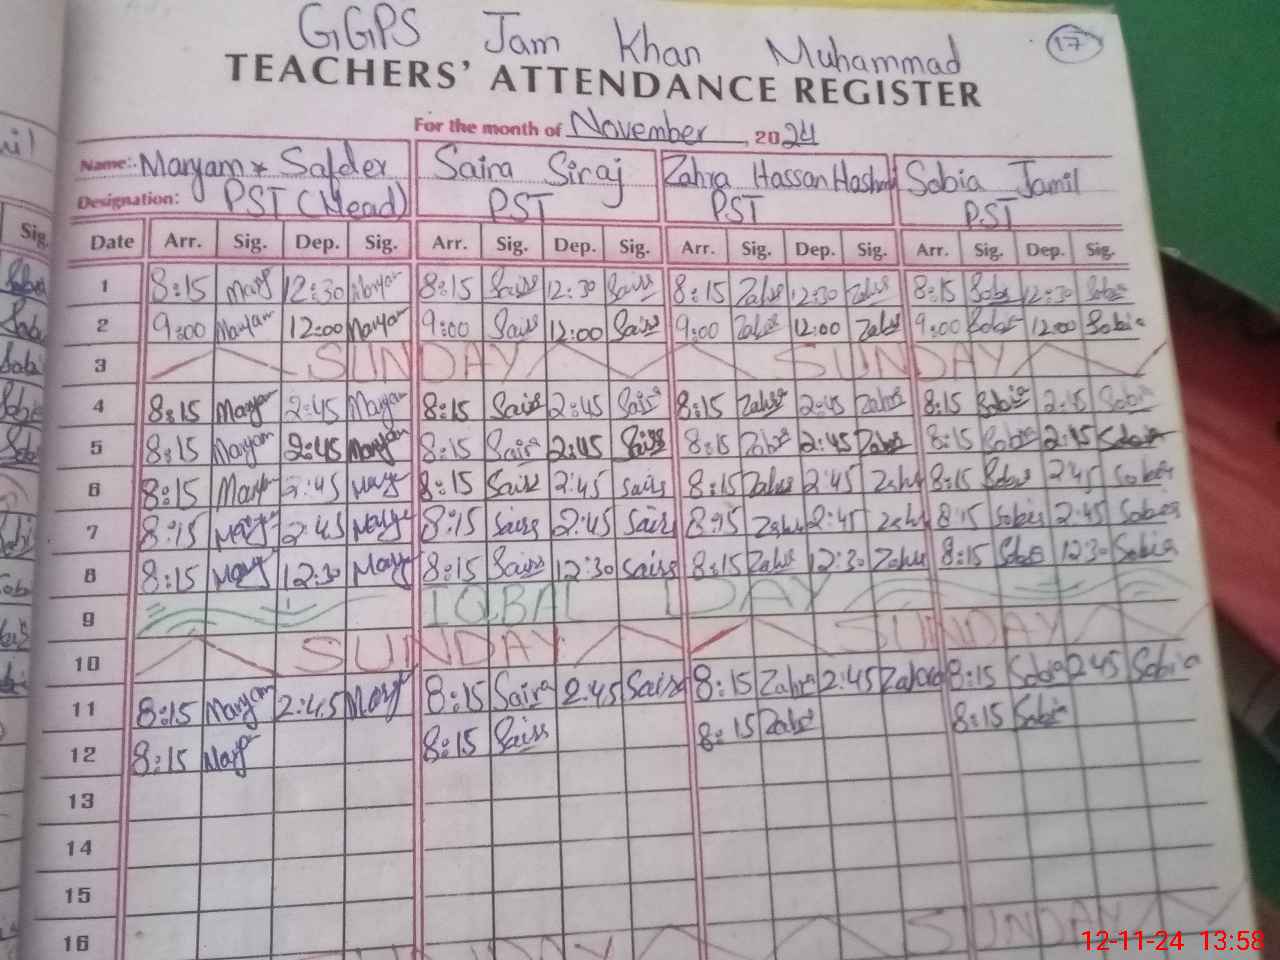 GGPS Jam Khan Muhammad
17
TEACHERS' ATTENDANCE REGISTER
For the month of November, 2024
Name: Maryam Safder Saira Siraj Zahra Hassan Hashmi Sobia Jamil
Designation: PST (Head) PST PST PST
Date Arr. Sig. Dep. Sig. Arr. Sig. Dep. Sig. Arr. Sig. Dep. Sig. Arr. Sig. Dep. Sig.
1 8:15 12:30 8:15 12:30 8:15 12:30 8:15 12:30
2 9:00 Maryam 12:00 Maryam 9:00 12:00 9:00 12:00 9:00 12:00 Sobia
3 SUNDAY SUNDAY
4 8:15 Maryam 2:45 Maryam 8:15 Saira 2:45 Saira 8:15 Zahra 2:45 Zahra 8:15 Sobia 2:45 Sobia
5 8:15 Maryam 2:45 Maryam 8:15 Saira 2:45 8:15 Zahra 2:45 Zahra 8:15 Sobia 2:45 Sobia
6 8:15 2:45 8:15 2:45 8:15 2:45 8:15 2:45 Sobia
7 8:15 2:45 8:15 2:45 8:15 2:45 8:15 Sobia 2:45 Sobia
8 8:15 12:30 8:15 12:30 8:15 12:30 8:15 12:30 Sobia
9 IQBAL DAY
10 SUNDAY SUNDAY
11 8:15 Maryam 2:45 8:15 Saira 2:45 Saira 8:15 Zahra 2:45 8:15 Sobia 2:45 Sobia
12 8:15 8:15 8:15 8:15 Sobia
13
14
15
16 SUNDAY
Sig.
12-11-24 13:58